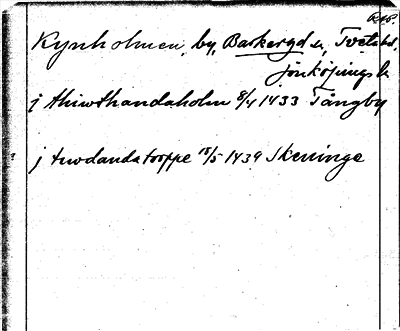 Kynholmen, by, Barkeryd s, Tveta hd,
Jönköpings l.
j thiwthandaholm 8/4 1433 Tängby
j twdandatorppe 15/5 1439 Skeninge